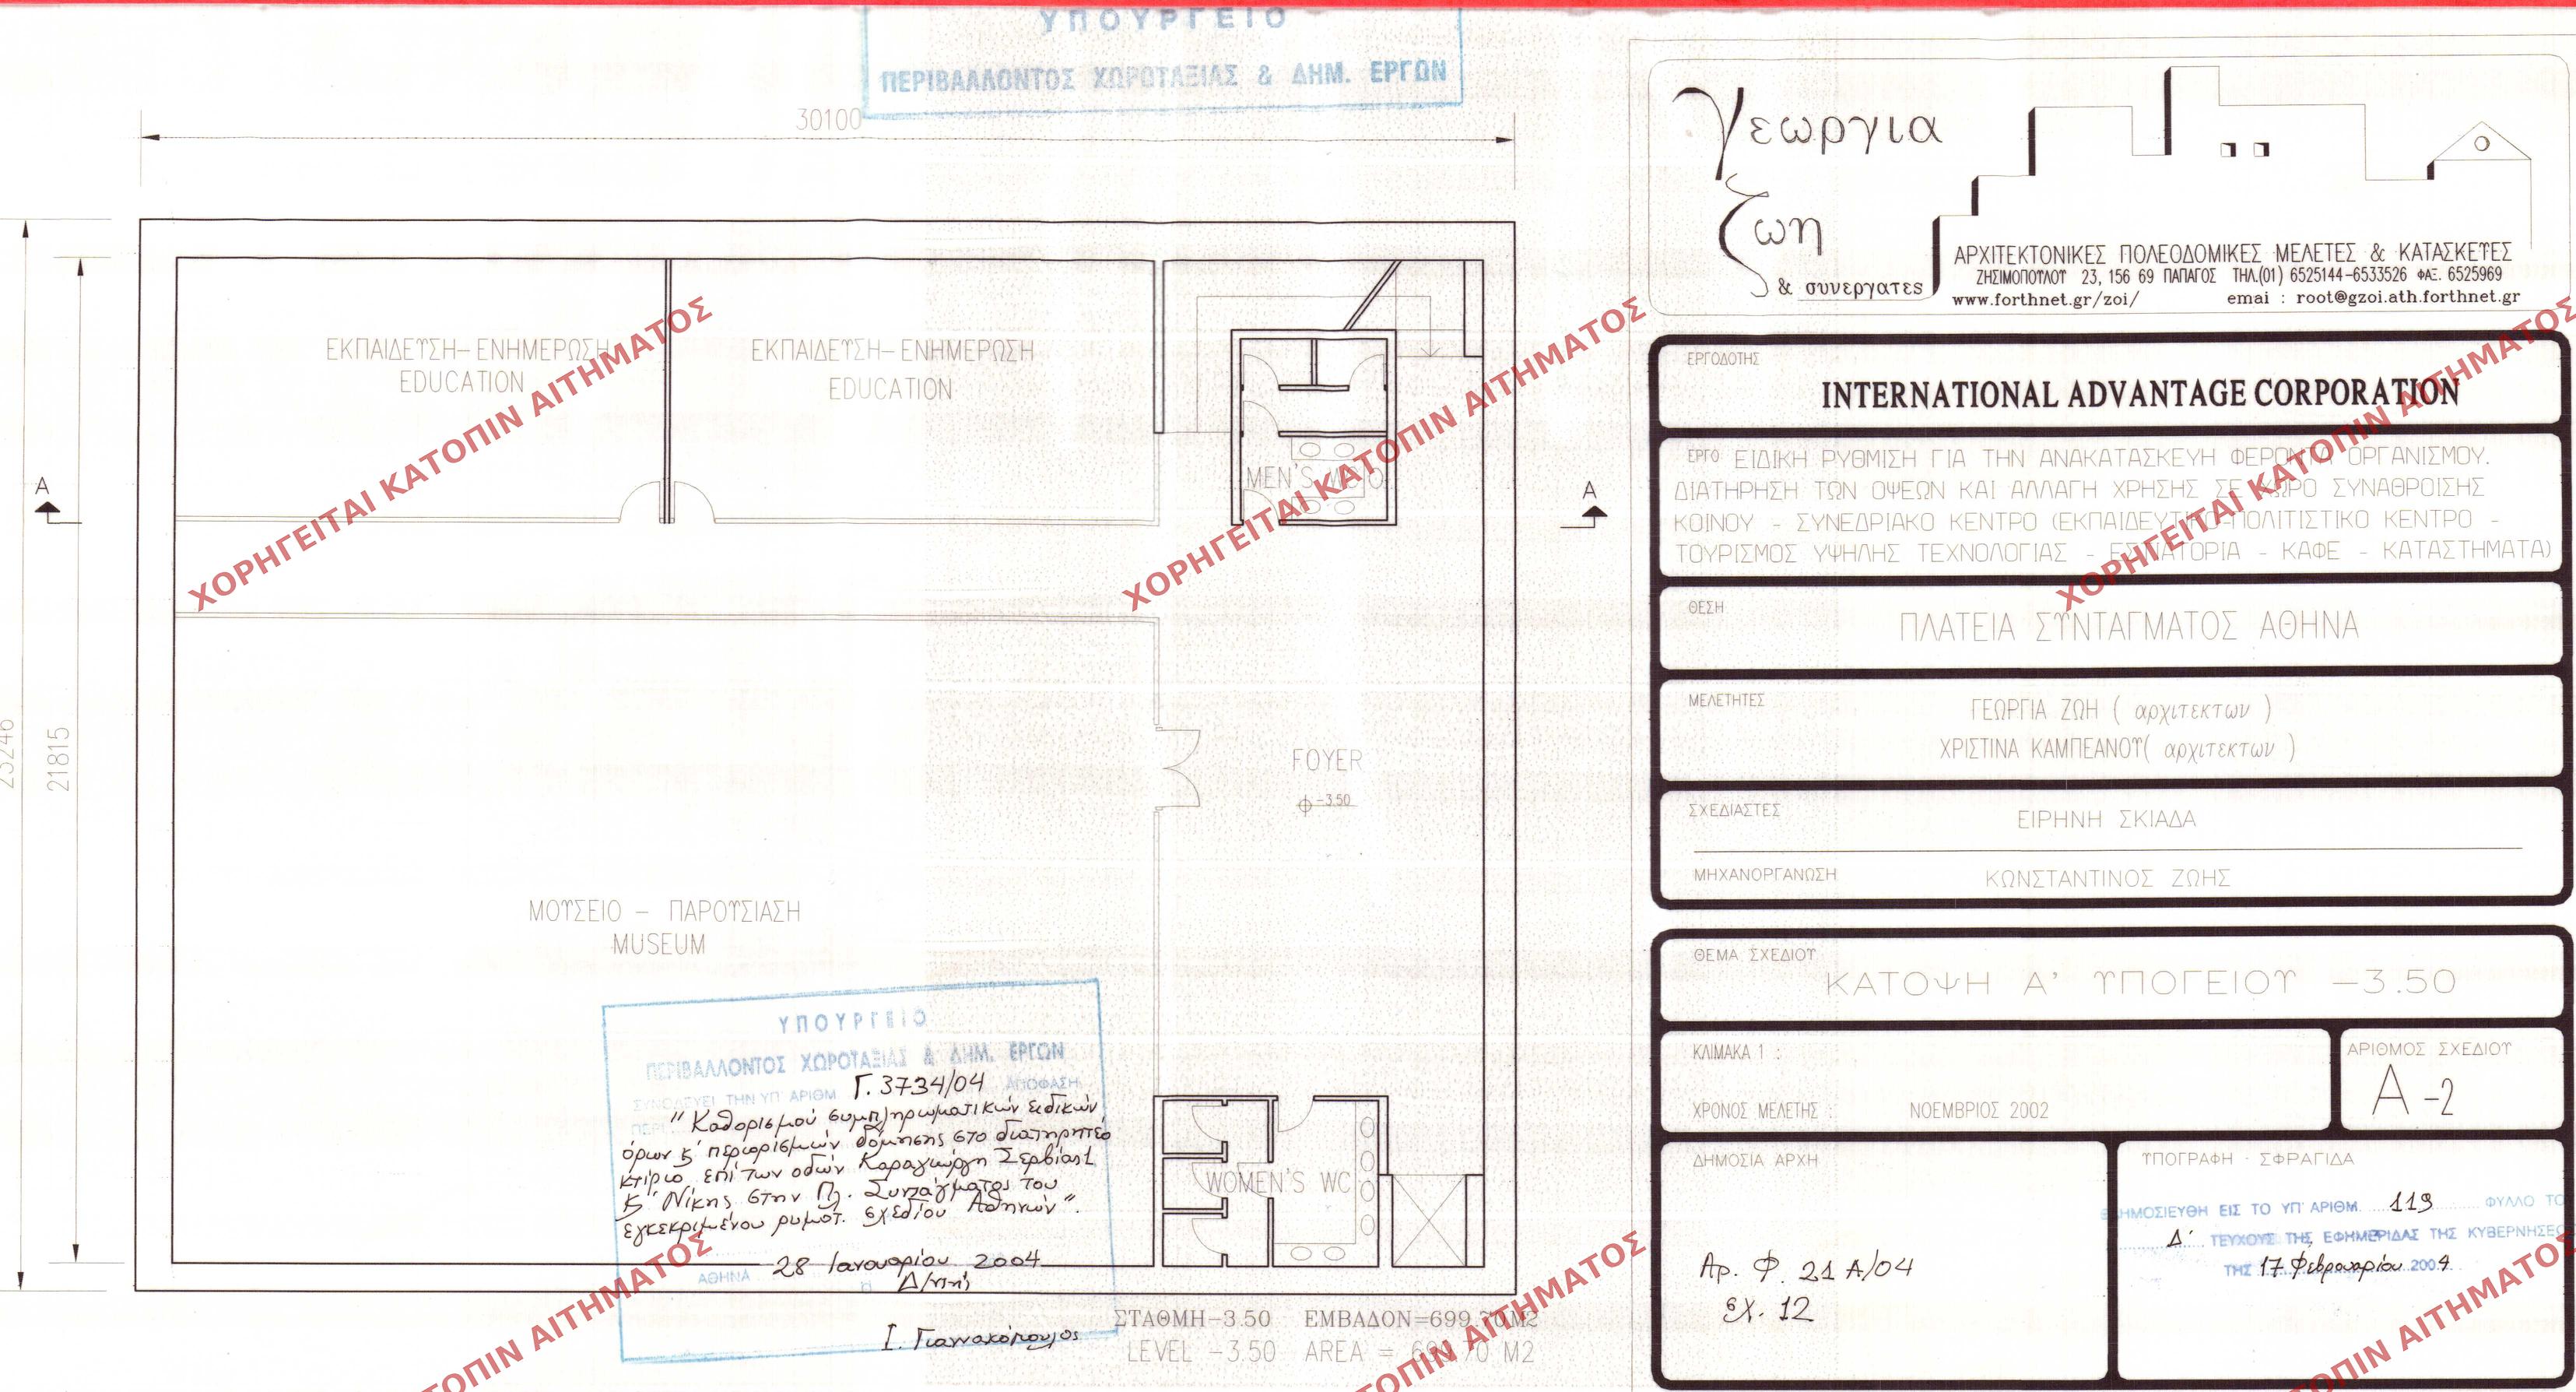 ΥΠΟΥΡΓΕΙΟ
ΠΕΡΙΒΑΛΛΟΝΤΟΣ ΧΩΡΟΤΑΞΙΑΣ & ΔΗΜ. ΕΡΓΩΝ
30100
23246
21815
A
A
ΕΚΠΑΙΔΕΥΣΗ-ΕΝΗΜΕΡΩΣΗ
EDUCATION
ΕΚΠΑΙΔΕΥΣΗ-ΕΝΗΜΕΡΩΣΗ
EDUCATION
MEN'S WC
FOYER
-3.50
ΜΟΥΣΕΙΟ - ΠΑΡΟΥΣΙΑΣΗ
MUSEUM
WOMEN'S WC
ΥΠΟΥΡΓΕΙΟ
ΠΕΡΙΒΑΛΛΟΝΤΟΣ ΧΩΡΟΤΑΞΙΑΣ & ΔΗΜ. ΕΡΓΩΝ
ΣΥΝΟΔΕΥΕΙ ΤΗΝ ΥΠ' ΑΡΙΘΜ Γ. 3734/04 ΑΠΟΦΑΣΗ
"Καθορισμού συμπληρωματικών ειδικών
όρων & περιορισμών δόμησης στο διατηρητέο
κτίριο επί των οδών Καραγιώργη Σερβίας 1
& Νίκης στην Πλ. Συντάγματος του
εγκεκριμένου ρυμοτ. σχεδίου Αθηνών".
ΑΘΗΝΑ 28 Ιανουαρίου 2004
Η Δ/ντή
Ι. Γιαννακόπουλος
ΣΤΑΘΜΗ-3.50 ΕΜΒΑΔΟΝ=699.70Μ2
LEVEL -3.50 AREA = 699.70 M2
γεωργια
ζωη
& συνεργατες
ΑΡΧΙΤΕΚΤΟΝΙΚΕΣ ΠΟΛΕΟΔΟΜΙΚΕΣ ΜΕΛΕΤΕΣ & ΚΑΤΑΣΚΕΥΕΣ
ΖΗΣΙΜΟΠΟΥΛΟΥ 23, 156 69 ΠΑΠΑΓΟΣ ΤΗΛ.(01) 6525144-6533526 ΦΑΞ. 6525969
www.forthnet.gr/zoi/ emai : root@gzoi.ath.forthnet.gr
ΕΡΓΟΔΟΤΗΣ
INTERNATIONAL ADVANTAGE CORPORATION
ΕΡΓΟ ΕΙΔΙΚΗ ΡΥΘΜΙΣΗ ΓΙΑ ΤΗΝ ΑΝΑΚΑΤΑΣΚΕΥΗ ΦΕΡΟΝΤΑ ΟΡΓΑΝΙΣΜΟΥ.
ΔΙΑΤΗΡΗΣΗ ΤΩΝ ΟΨΕΩΝ ΚΑΙ ΑΛΛΑΓΗ ΧΡΗΣΗΣ ΣΕ ΧΩΡΟ ΣΥΝΑΘΡΟΙΣΗΣ
ΚΟΙΝΟΥ - ΣΥΝΕΔΡΙΑΚΟ ΚΕΝΤΡΟ (ΕΚΠΑΙΔΕΥΤΙΚΟ-ΠΟΛΙΤΙΣΤΙΚΟ ΚΕΝΤΡΟ -
ΤΟΥΡΙΣΜΟΣ ΥΨΗΛΗΣ ΤΕΧΝΟΛΟΓΙΑΣ - ΕΣΤΙΑΤΟΡΙΑ - ΚΑΦΕ - ΚΑΤΑΣΤΗΜΑΤΑ)
ΘΕΣΗ
ΠΛΑΤΕΙΑ ΣΥΝΤΑΓΜΑΤΟΣ ΑΘΗΝΑ
ΜΕΛΕΤΗΤΕΣ
ΓΕΩΡΓΙΑ ΖΩΗ ( αρχιτεκτων )
ΧΡΙΣΤΙΝΑ ΚΑΜΠΕΑΝΟΥ( αρχιτεκτων )
ΣΧΕΔΙΑΣΤΕΣ
ΕΙΡΗΝΗ ΣΚΙΑΔΑ
ΜΗΧΑΝΟΡΓΑΝΩΣΗ
ΚΩΝΣΤΑΝΤΙΝΟΣ ΖΩΗΣ
ΘΕΜΑ ΣΧΕΔΙΟΥ
ΚΑΤΟΨΗ Α' ΥΠΟΓΕΙΟΥ -3.50
ΚΛΙΜΑΚΑ 1 :
ΧΡΟΝΟΣ ΜΕΛΕΤΗΣ : ΝΟΕΜΒΡΙΟΣ 2002
ΑΡΙΘΜΟΣ ΣΧΕΔΙΟΥ
A-2
ΔΗΜΟΣΙΑ ΑΡΧΗ
Αρ. Φ. 21 Α/04
σχ. 12
ΥΠΟΓΡΑΦΗ - ΣΦΡΑΓΙΔΑ
ΔΗΜΟΣΙΕΥΘΗ ΕΙΣ ΤΟ ΥΠ' ΑΡΙΘΜ. 119 ΦΥΛΛΟ ΤΟ
Δ' ΤΕΥΧΟΥΣ ΤΗΣ ΕΦΗΜΕΡΙΔΑΣ ΤΗΣ ΚΥΒΕΡΝΗΣΕΩ
ΤΗΣ 17 Φεβρουαρίου 2004
ΧΟΡΗΓΕΙΤΑΙ ΚΑΤΟΠΙΝ ΑΙΤΗΜΑΤΟΣ
ΧΟΡΗΓΕΙΤΑΙ ΚΑΤΟΠΙΝ ΑΙΤΗΜΑΤΟΣ
ΧΟΡΗΓΕΙΤΑΙ ΚΑΤΟΠΙΝ ΑΙΤΗΜΑΤΟΣ
ΤΟΠΙΝ ΑΙΤΗΜΑΤΟΣ
ΤΟΠΙΝ ΑΙΤΗΜΑΤΟΣ
ΤΟΠΙΝ ΑΙΤΗΜΑΤΟΣ